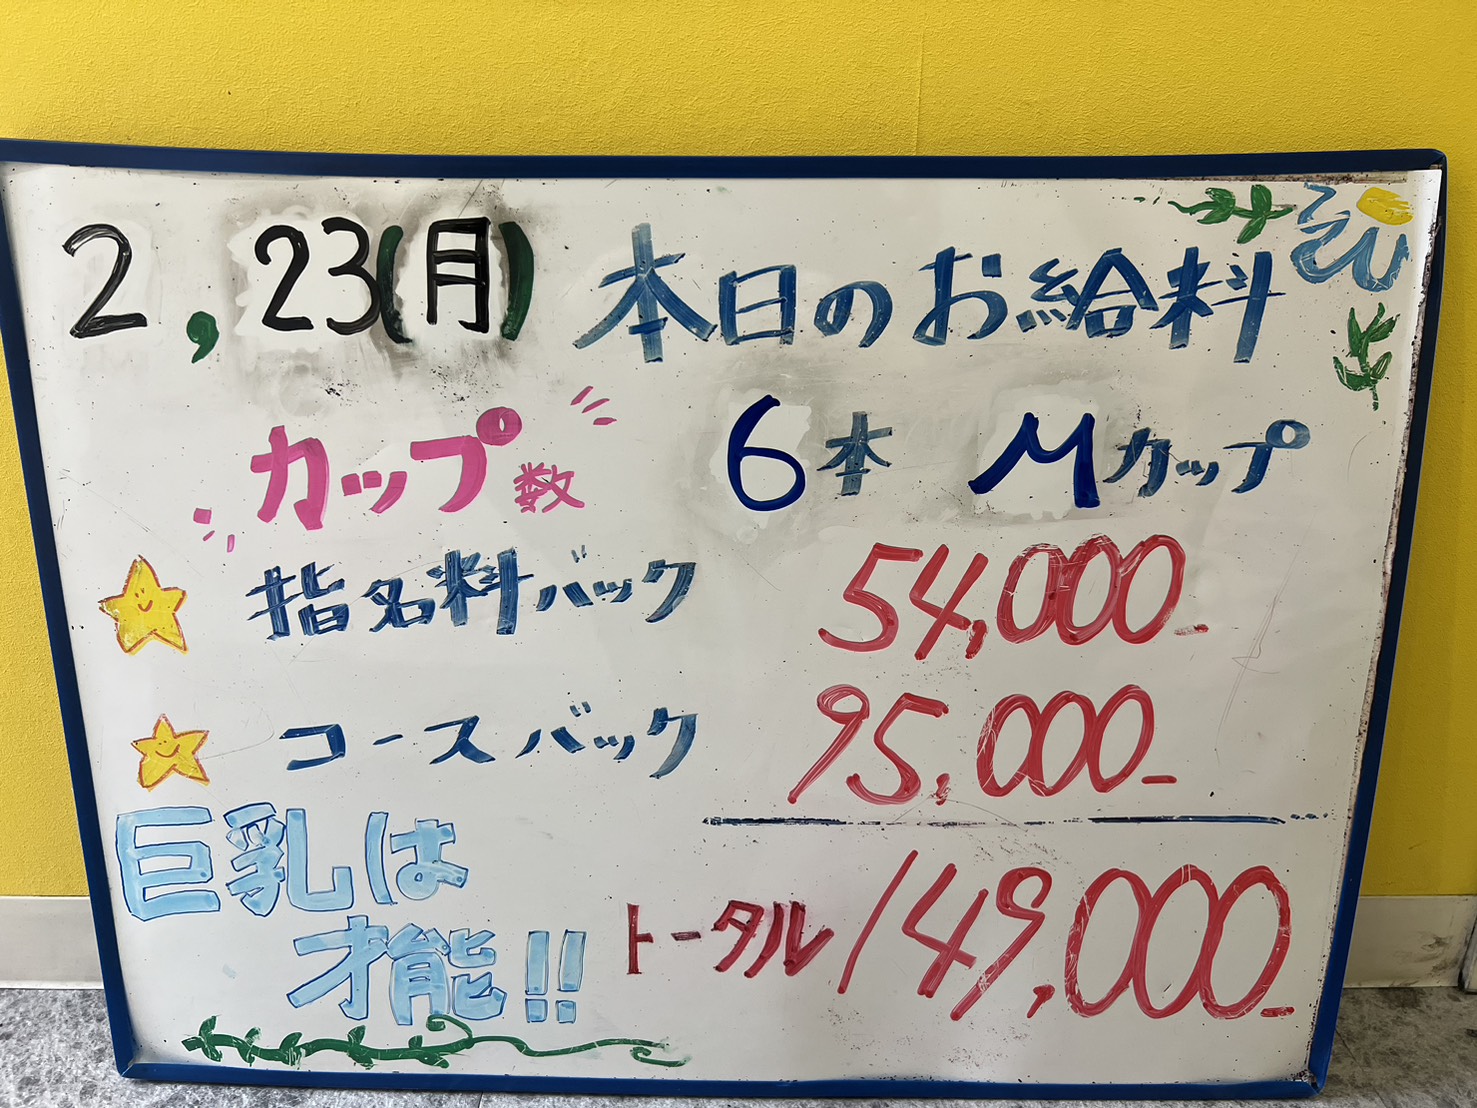 2,23(月) 本日のお給料
カップ数 6本 Mカップ
指名料バック 54,000-
コースバック 95,000-
巨乳は
才能!!
トータル 149,000-